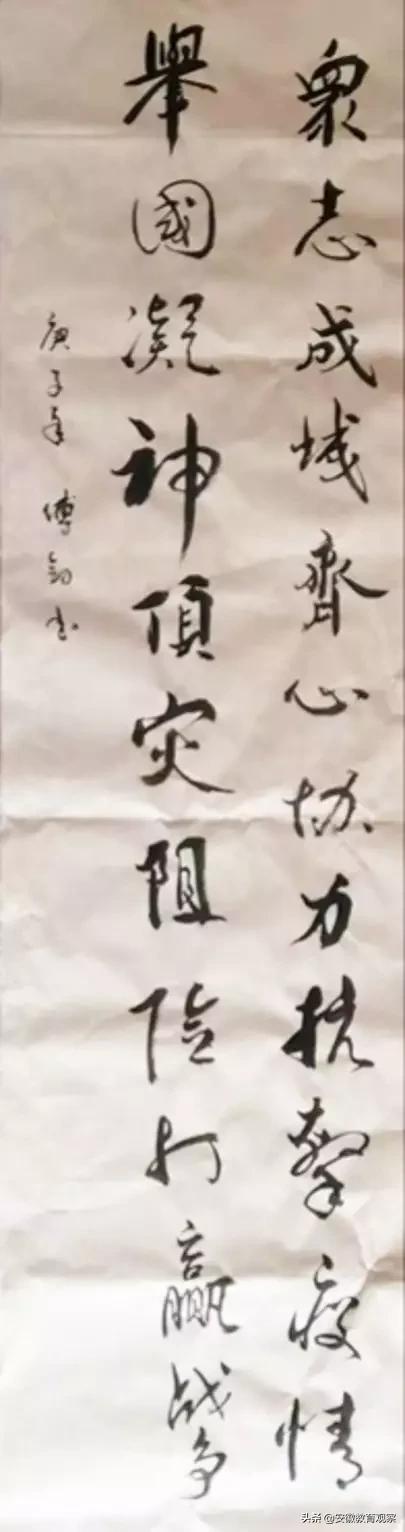 衆志成城齊心協力抗擊疫情
舉國凝神頂災阻險打贏战争
庚子年 傅剑书
头条 @安徽教育观察